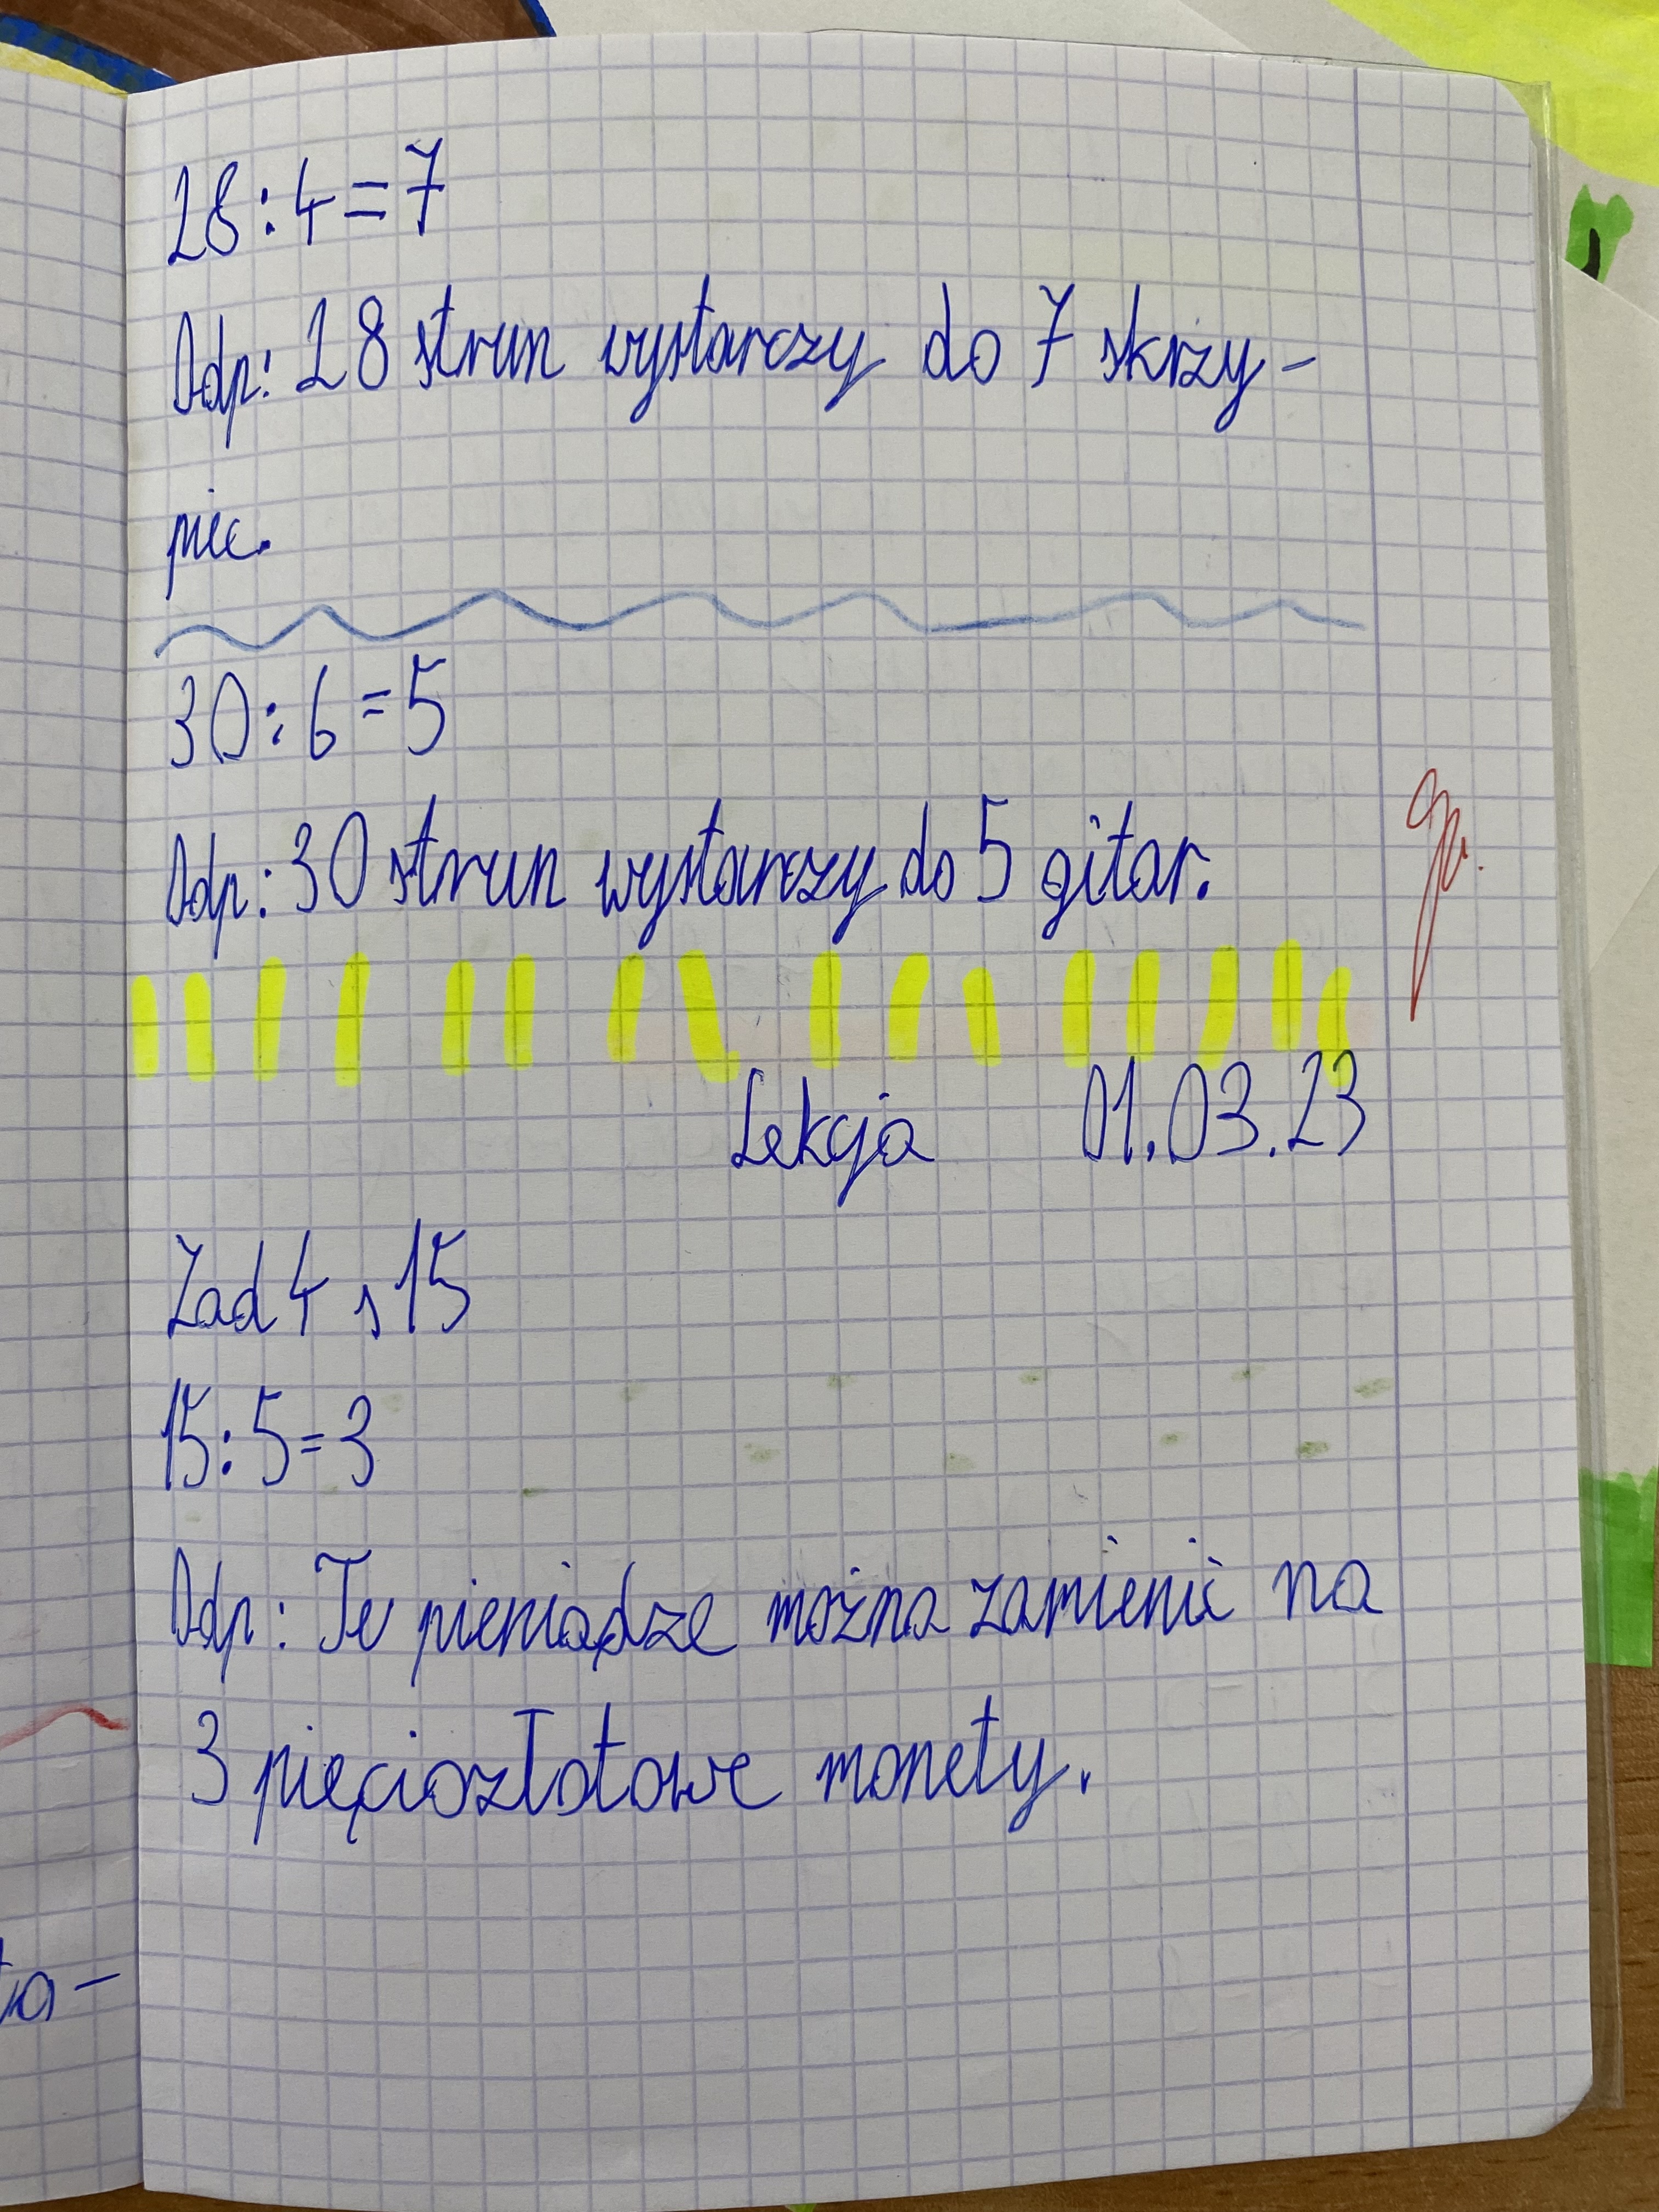 28:4=7
Odp: 28 strun wystarczy do 7 skrzy-
piec.
30:6=5
Odp: 30 strun wystarczy do 5 gitar.
Lekcja 01.03.23
Zad 4 s 15
15:5=3
Odp: Te pieniądze można zamienić na
3 pięciozłotowe monety.